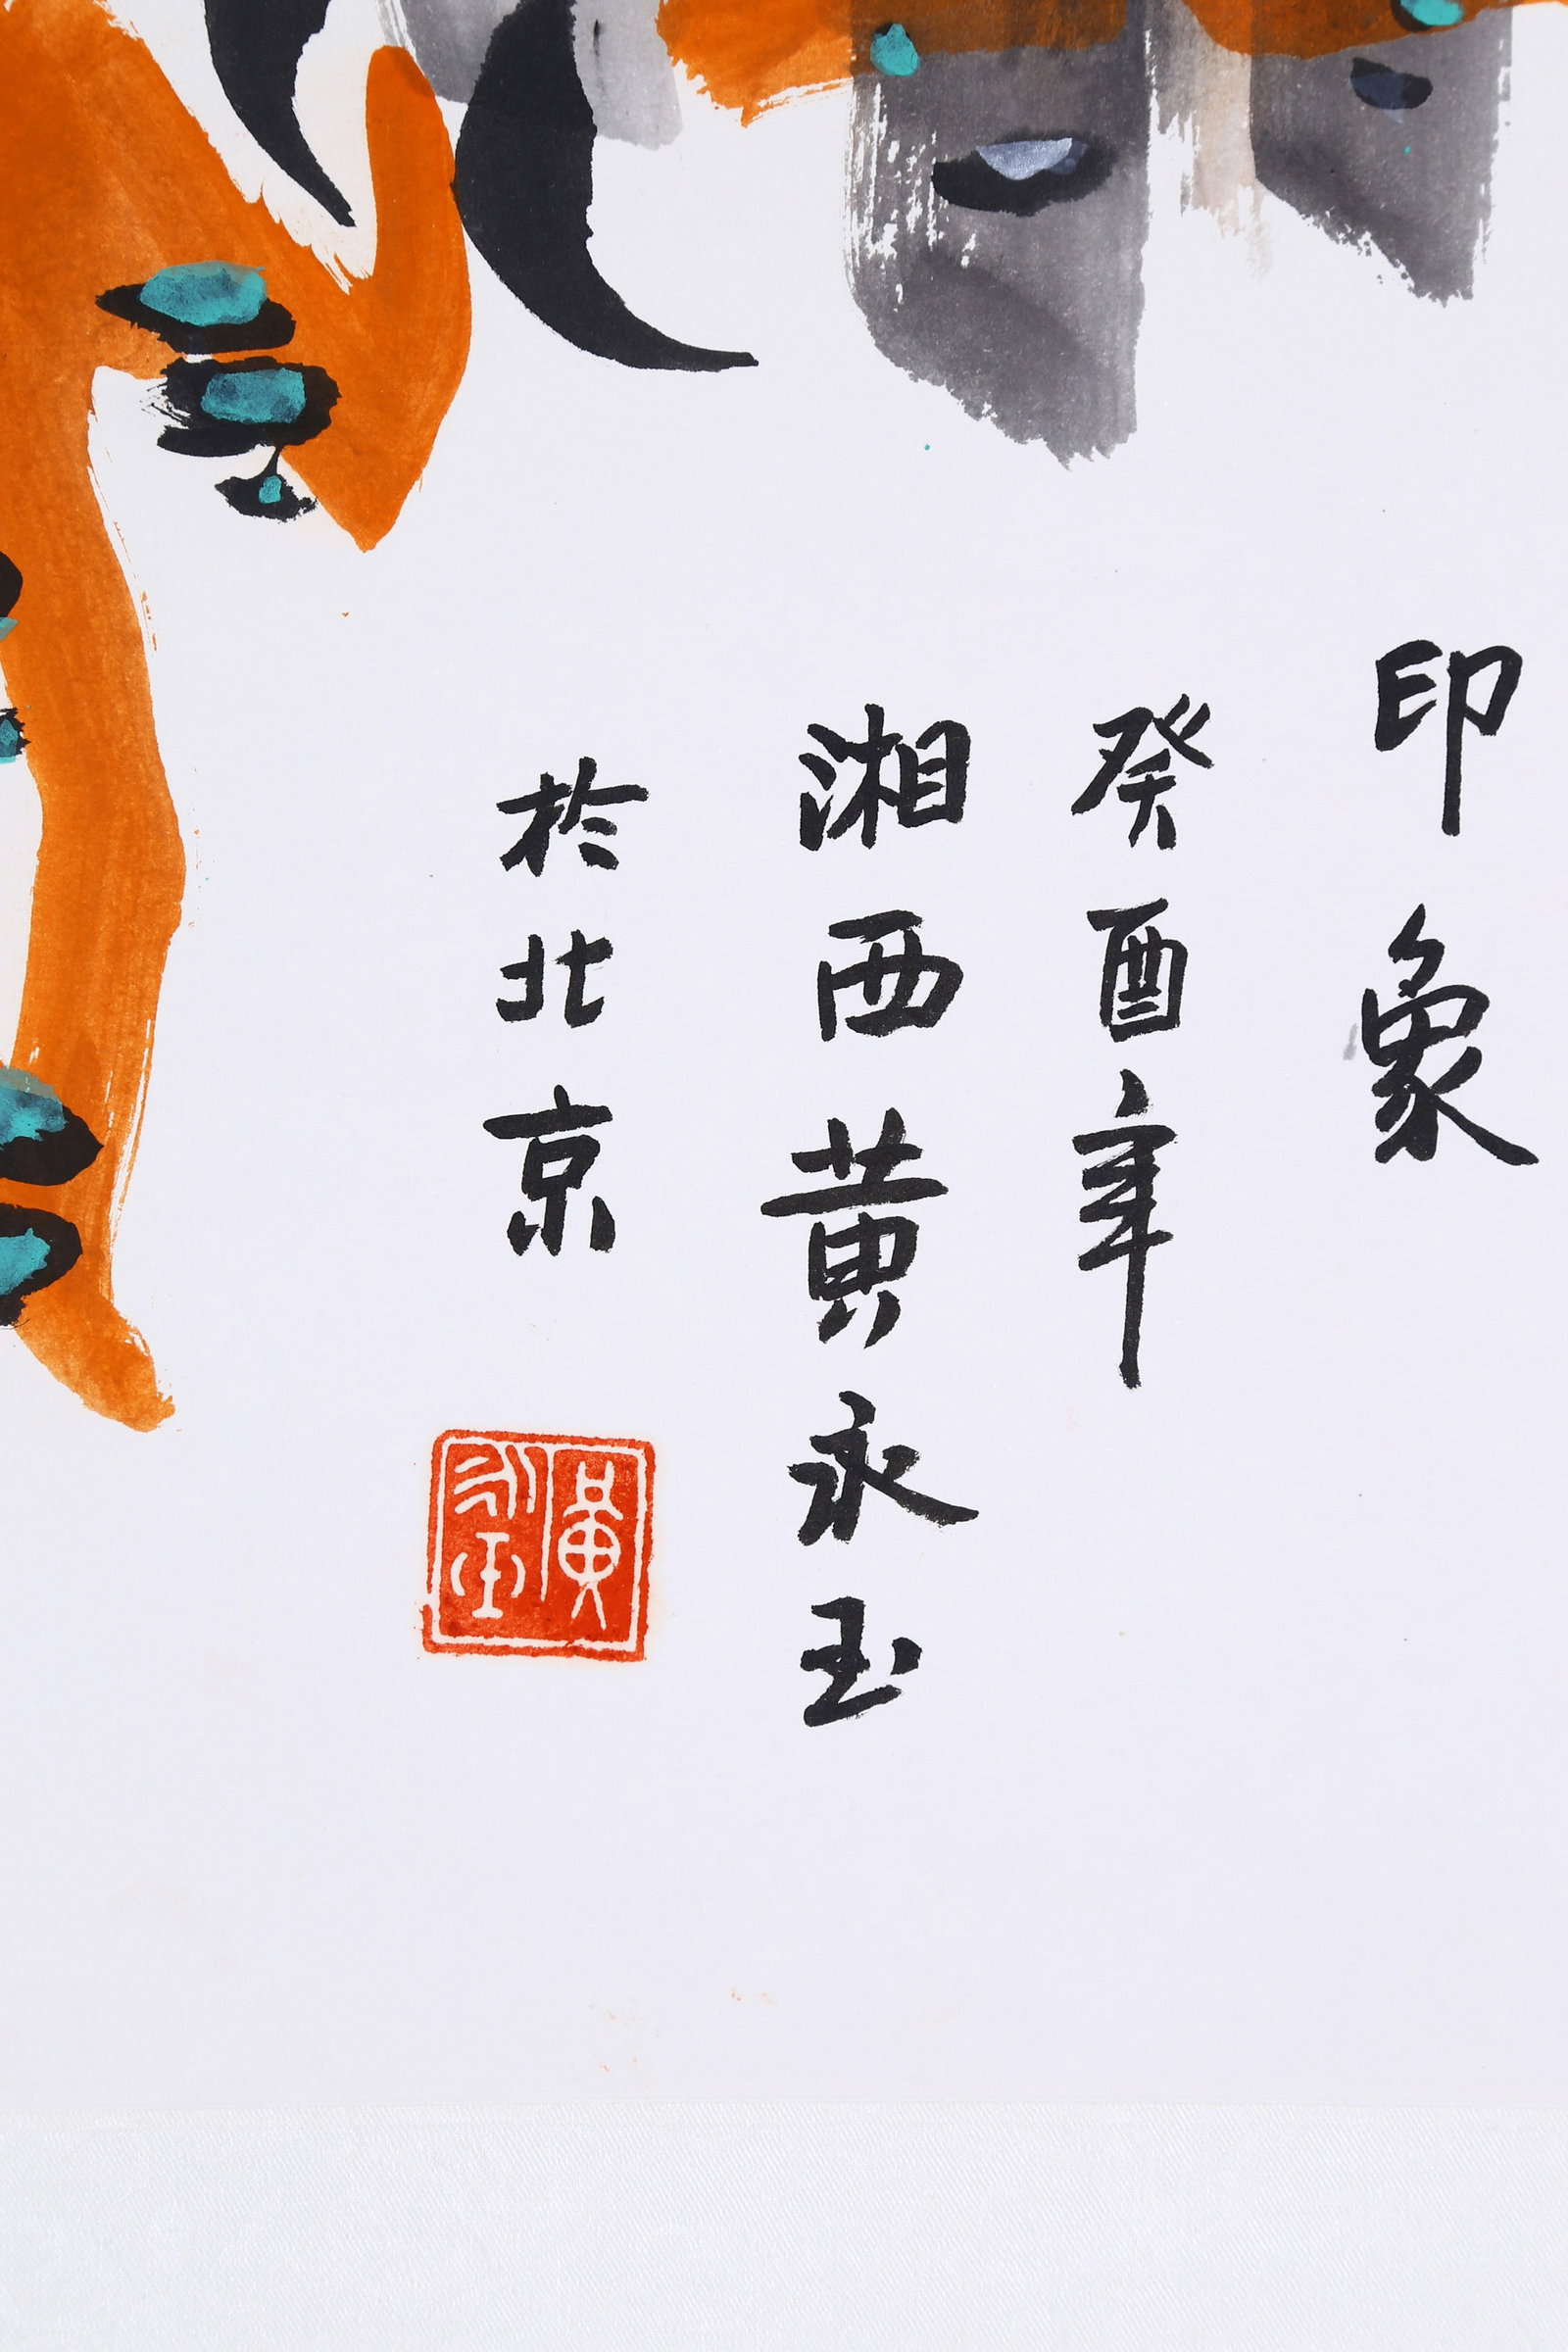 印象
癸酉年
湘西黄永玉
於北京
黄永玉